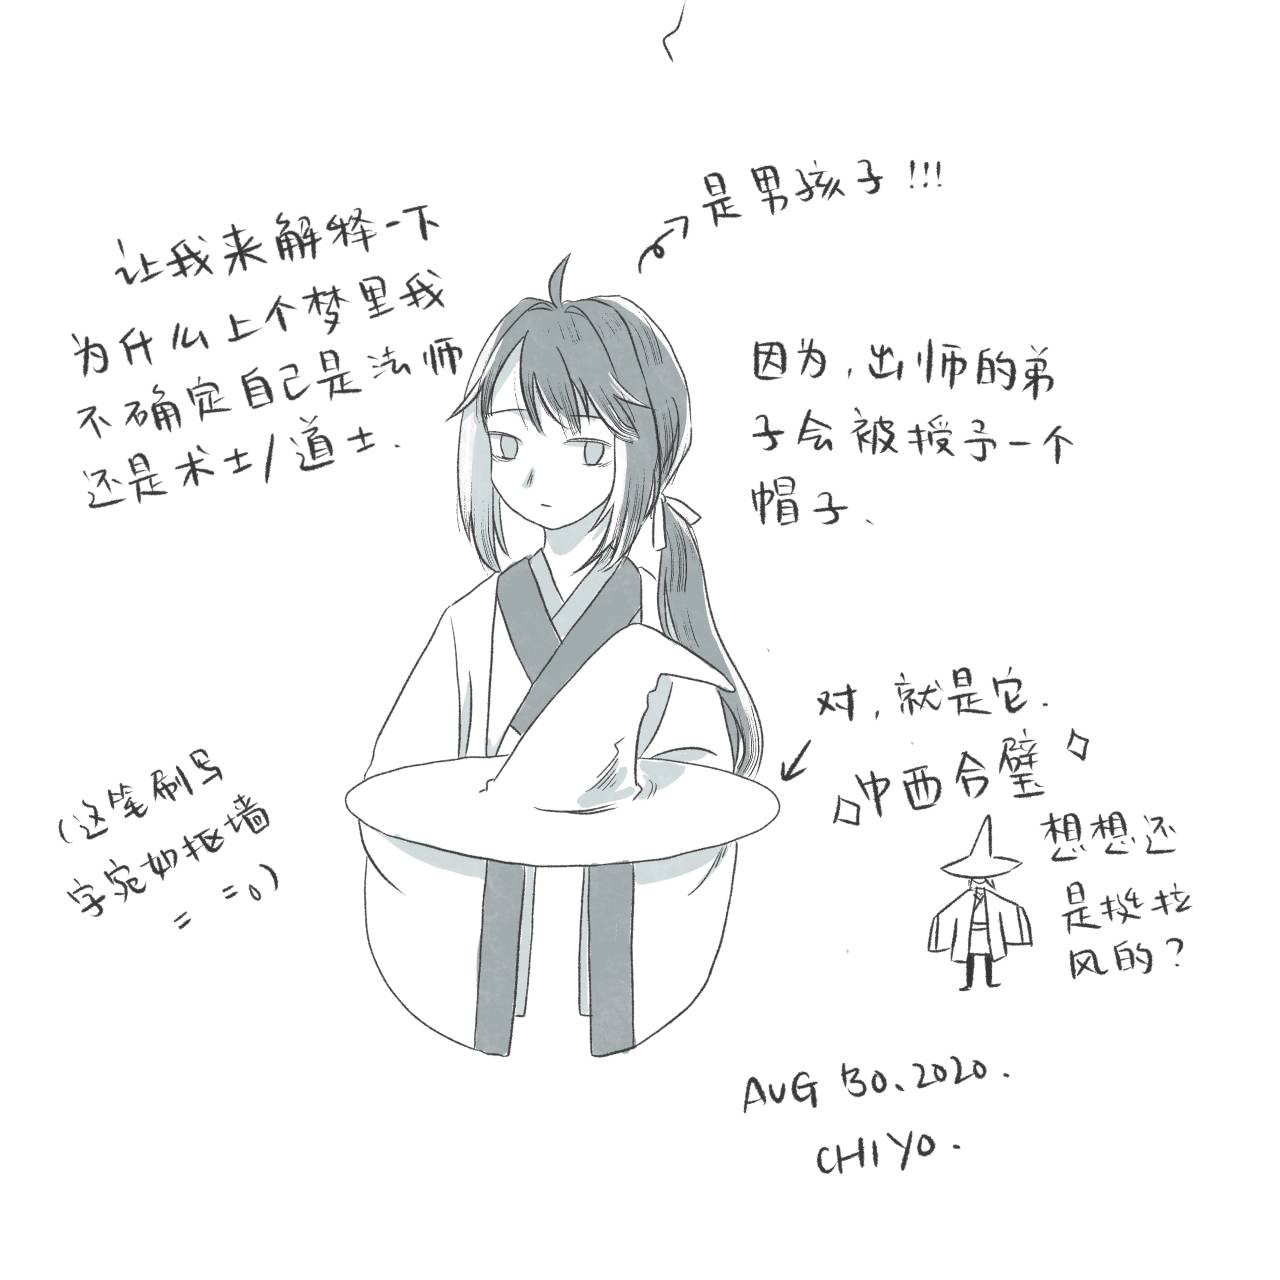 是男孩子!!!
让我来解释一下
为什么上个梦里我
不确定自己是法师
还是术士/道士.
因为,出师的弟
子会被授予一个
帽子、
对,就是它.
中西合璧
想想还
是挺拉
风的?
(这笔刷写
字宛如抠墙
= =。)
AUG 30.2020.
CHIYO.